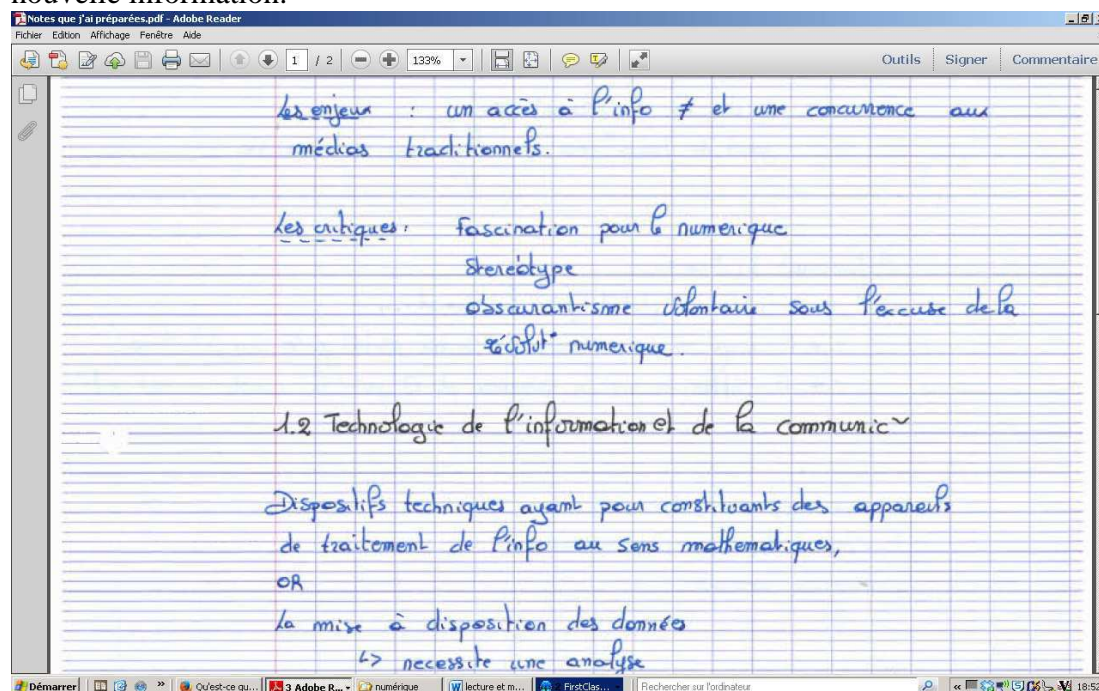 nouvelle information.
Notes que j'ai préparées.pdf - Adobe Reader
Fichier Edition Affichage Fenêtre Aide
1 / 2 133% Outils Signer Commentaire
Les enjeux : un accès à l'info ≠ et une concurrence aux
médias traditionnels.
Les critiques : fascination pour le numerique
Stereotype
obscurantisme volontaire sous l'excuse de la
révolut° numerique.
1.2 Technologie de l'information et de la communic~
Dispositifs techniques ayant pour constituants des appareils
de traitement de l'info au sens mathematiques,
OR
La mise à disposition des données
↳ necessite une analyse
Démarrer » Qu'est-ce qu... 3 Adobe R... numérique lecture et m... FirstClas... Rechercher sur l'ordinateur « 18:52